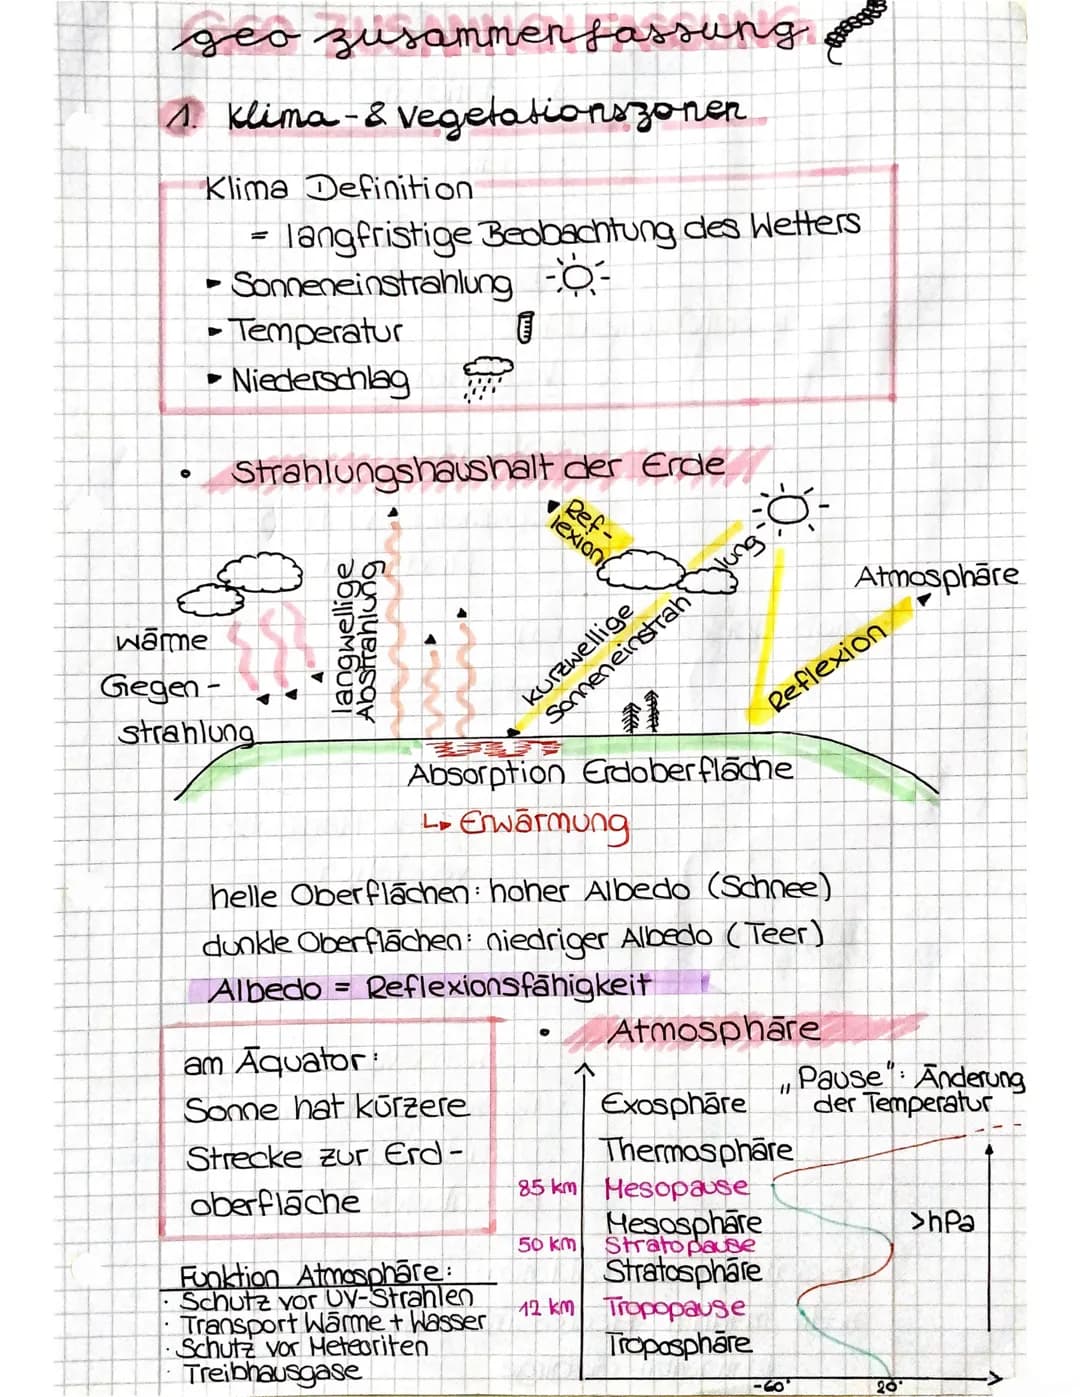 geo zusammenfassung
1. Klima-& Vegetationszonen
Klima Definition
= langfristige Beobachtung des Wetters
▸ Sonneneinstrahlung
▸ Temperatur
▸ Niederschlag
• Strahlungshaushalt der Erde
Ref-
lexion
Atmosphäre
wärme
Gegen-
strahlung
langwellige
Abstrahlung
kurzwellige
Sonneneinstrahlung
Reflexion
Absorption Erdoberfläche
↳ Erwärmung
helle Oberflächen: hoher Albedo (Schnee)
dunkle Oberflächen: niedriger Albedo (Teer)
Albedo = Reflexionsfähigkeit
am Äquator:
Sonne hat kürzere
Strecke zur Erd-
oberfläche
Funktion Atmosphäre:
· Schutz vor UV-Strahlen
· Transport Wärme + Wasser
· Schutz vor Meteoriten
· Treibhausgase
• Atmosphäre
„Pause": Änderung
der Temperatur
Exosphäre
Thermosphäre
85 km Mesopause
Mesosphäre
50 km Stratopause
Stratosphäre
12 km Tropopause
Troposphäre
>hPa
-60° 20°